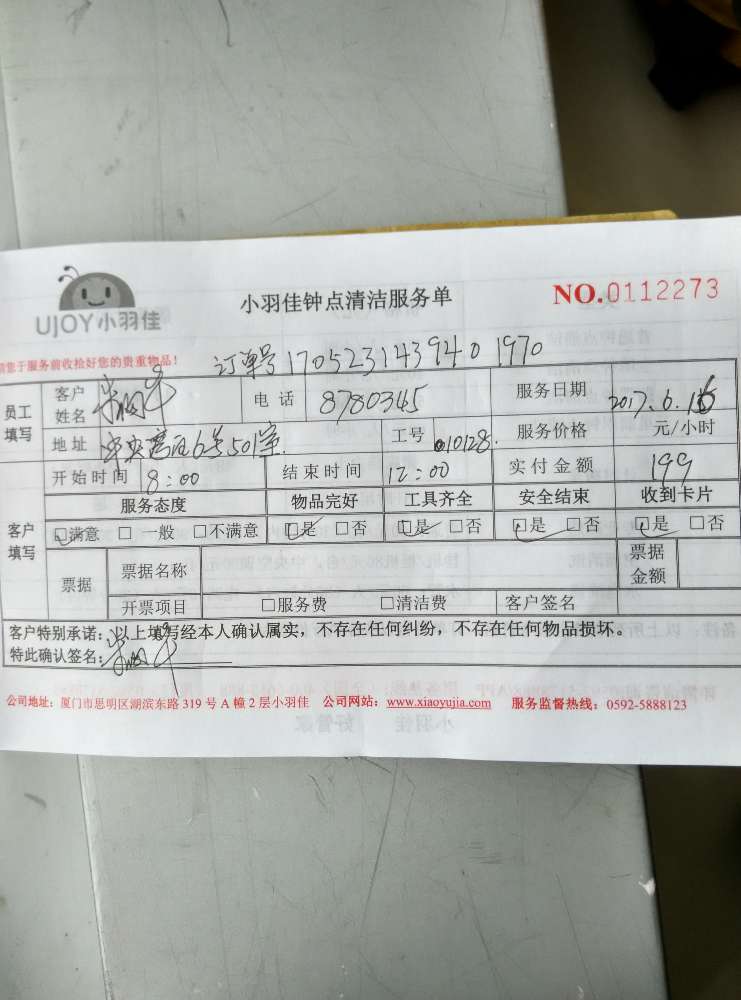 UJOY小羽佳
小羽佳钟点清洁服务单
NO.0112273
请您于服务前收拾好您的贵重物品!
订单号 170523143940 1970
员工填写 客户姓名 电话 8780345 服务日期 2017.6.15
地址 6号501室 工号 010128 服务价格 元/小时
开始时间 8:00 结束时间 12:00 实付金额 199
客户填写 服务态度 物品完好 工具齐全 安全结束 收到卡片
□满意 □一般 □不满意 □是 □否 □是 □否 □是 □否 □是 □否
票据 票据名称 票据金额
开票项目 □服务费 □清洁费 客户签名
客户特别承诺:以上填写经本人确认属实,不存在任何纠纷,不存在任何物品损坏。
特此确认签名:
公司地址:厦门市思明区湖滨东路 319 号 A 幢 2 层小羽佳 公司网站:www.xiaoyujia.com 服务监督热线:0592-5888123